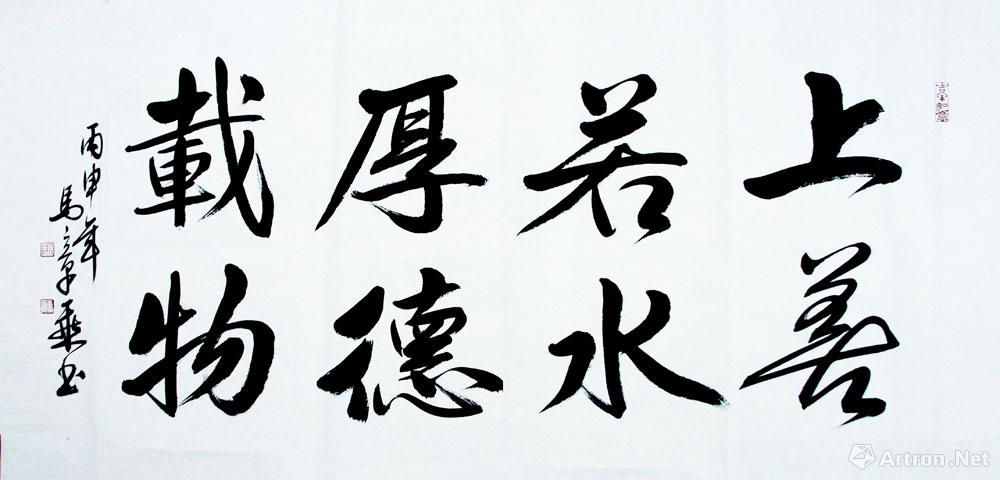 上善
若水
厚德
載物
丙申年
馬章乘书
Artron.Net